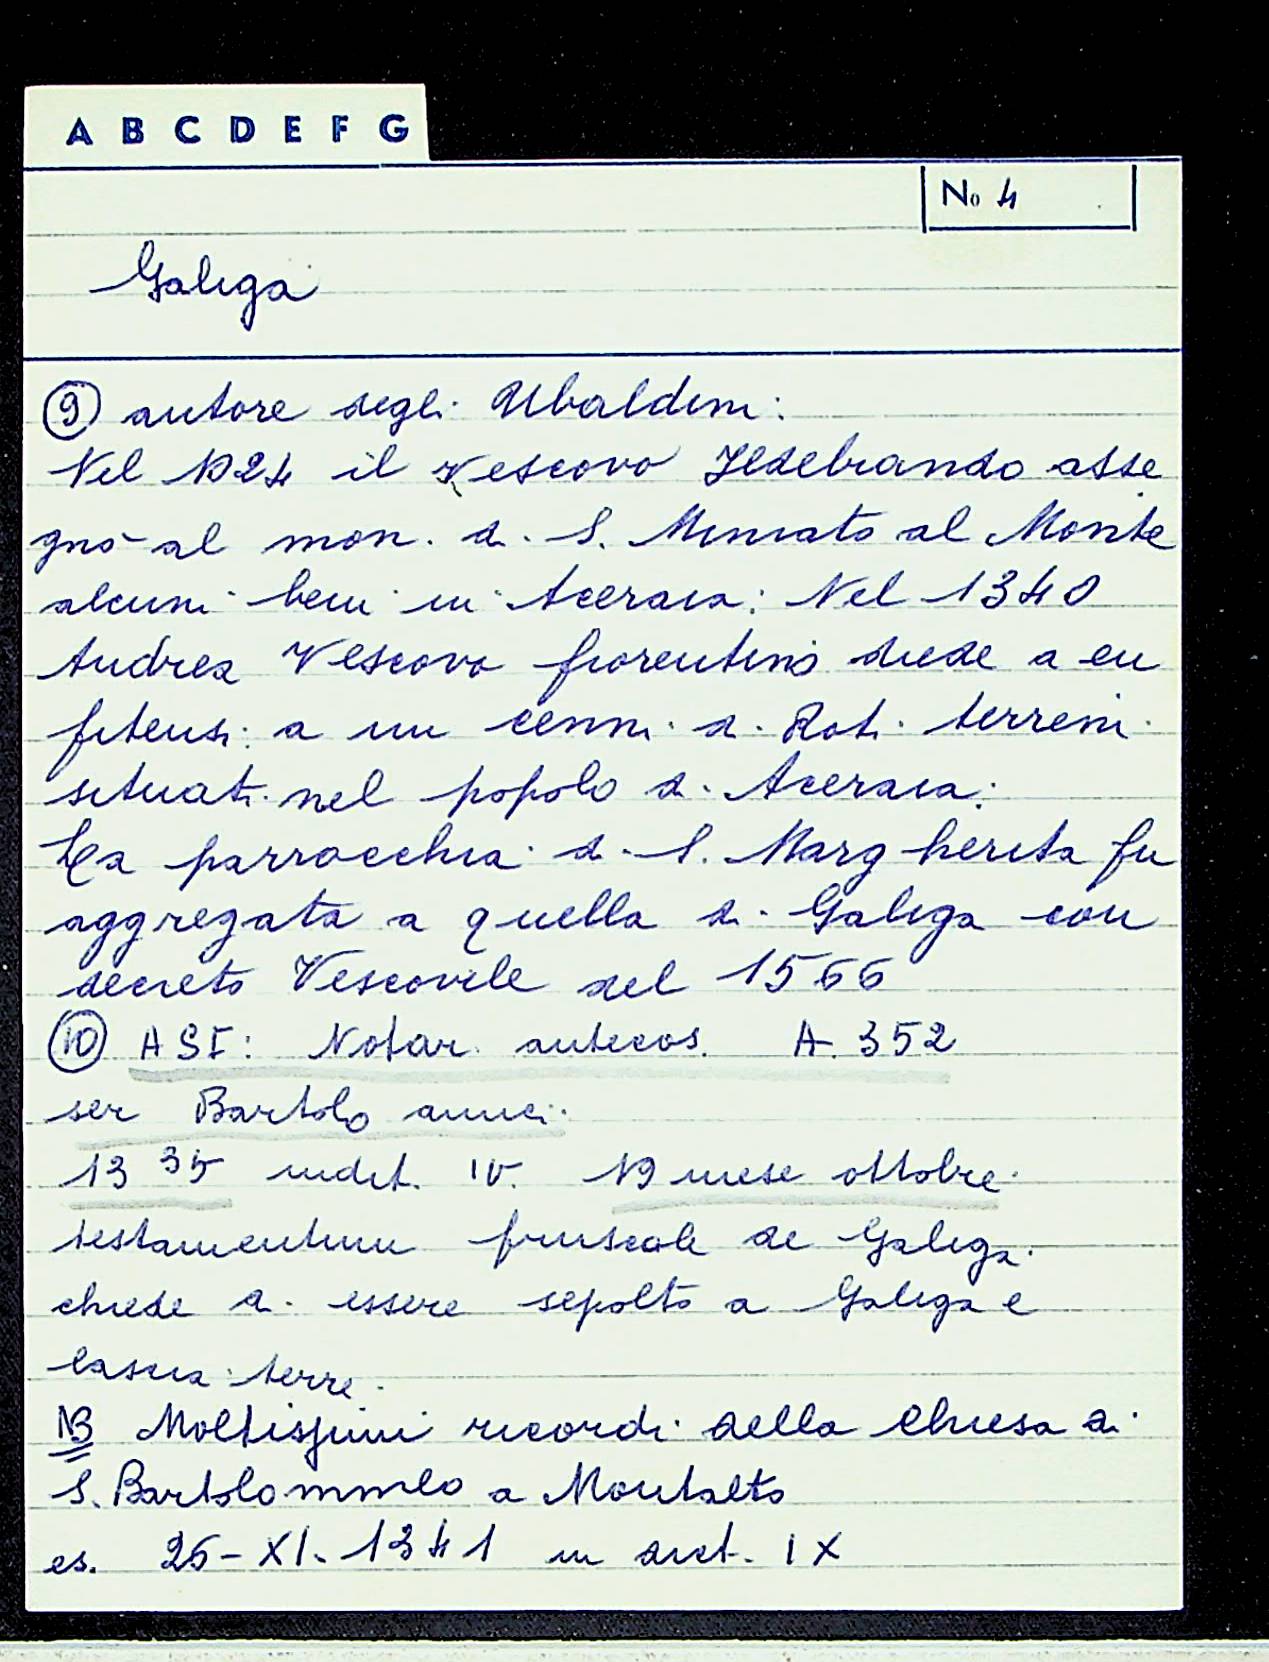 A B C D E F G
No 4
Galiga
⑨ autore degli Ubaldini:
Nel 1024 il Vescovo Ildebrando asse
gnò al mon. di S. Miniato al Monte
alcuni beni in Aceraia: Nel 1340
Andrea Vescovo fiorentino diede a en
fiteusi a un Cenni di Roti terreni
situati nel popolo di Aceraia:
La parrocchia di S. Margherita fu
aggregata a quella di Galiga con
decreto Vescovile del 1566
⑩ ASF: Notar. antecos. A. 352
ser Bartolo
1335 indit. IV. 19 mese ottobre
testamentum de Galiga.
chiede di essere sepolto a Galiga e
lascia terre.
NB Moltissimi ricordi della Chiesa di
S. Bartolommeo a Montalto
es. 26-XI-1341 indict. IX